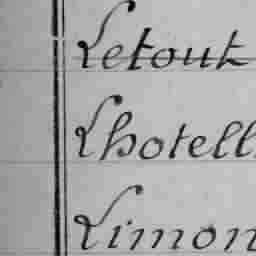 Letout
Lhotell
Limon